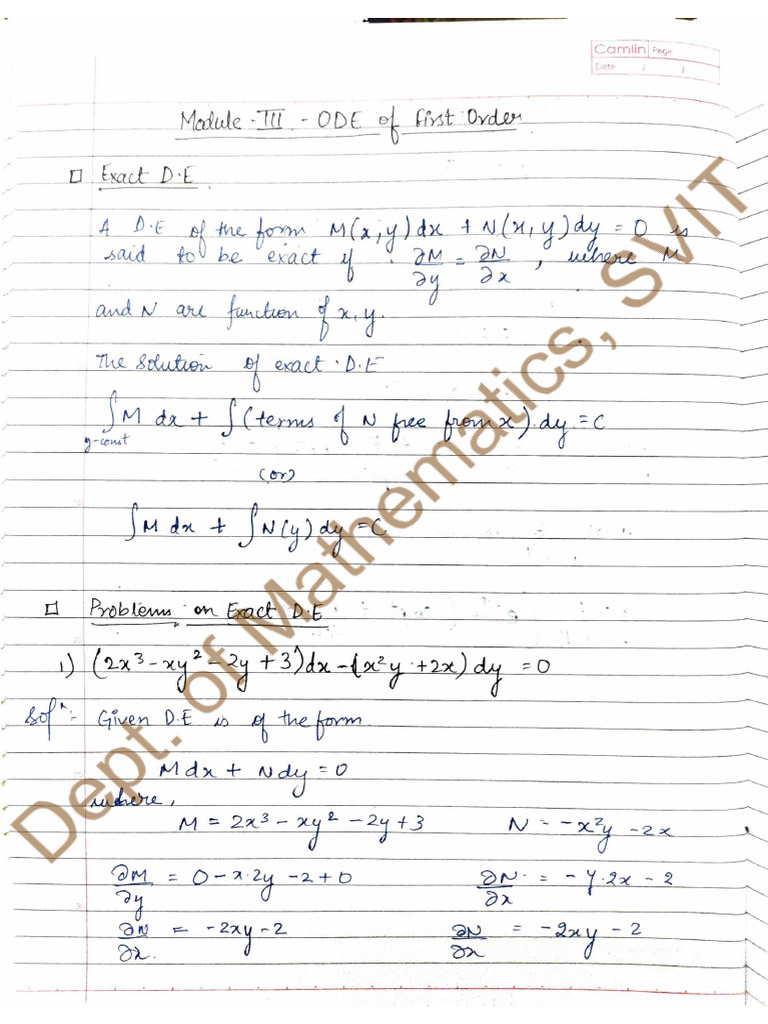 Camlin Page
Date / /
Module-III - ODE of first Order
□ Exact D.E
A D.E of the form M(x,y)dx + N(x,y)dy = 0 is
said to be exact if ∂M/∂y = ∂N/∂x, where M
and N are function of x, y.
The solution of exact D.E
∫M dx + ∫(terms of N free from x).dy = C
y-const
(or)
∫M dx + ∫N(y) dy = C
□ Problems on Exact D.E.
1) (2x³ - xy² - 2y + 3)dx - (x²y + 2x) dy = 0
Solⁿ:- Given D.E is of the form.
Mdx + Ndy = 0
where,
M = 2x³ - xy² - 2y + 3 N = -x²y - 2x
∂M/∂y = 0 - x.2y - 2 + 0 ∂N/∂x = -y.2x - 2
∂N/∂x = -2xy - 2 ∂N/∂x = -2xy - 2
Dept. of Mathematics, SVIT